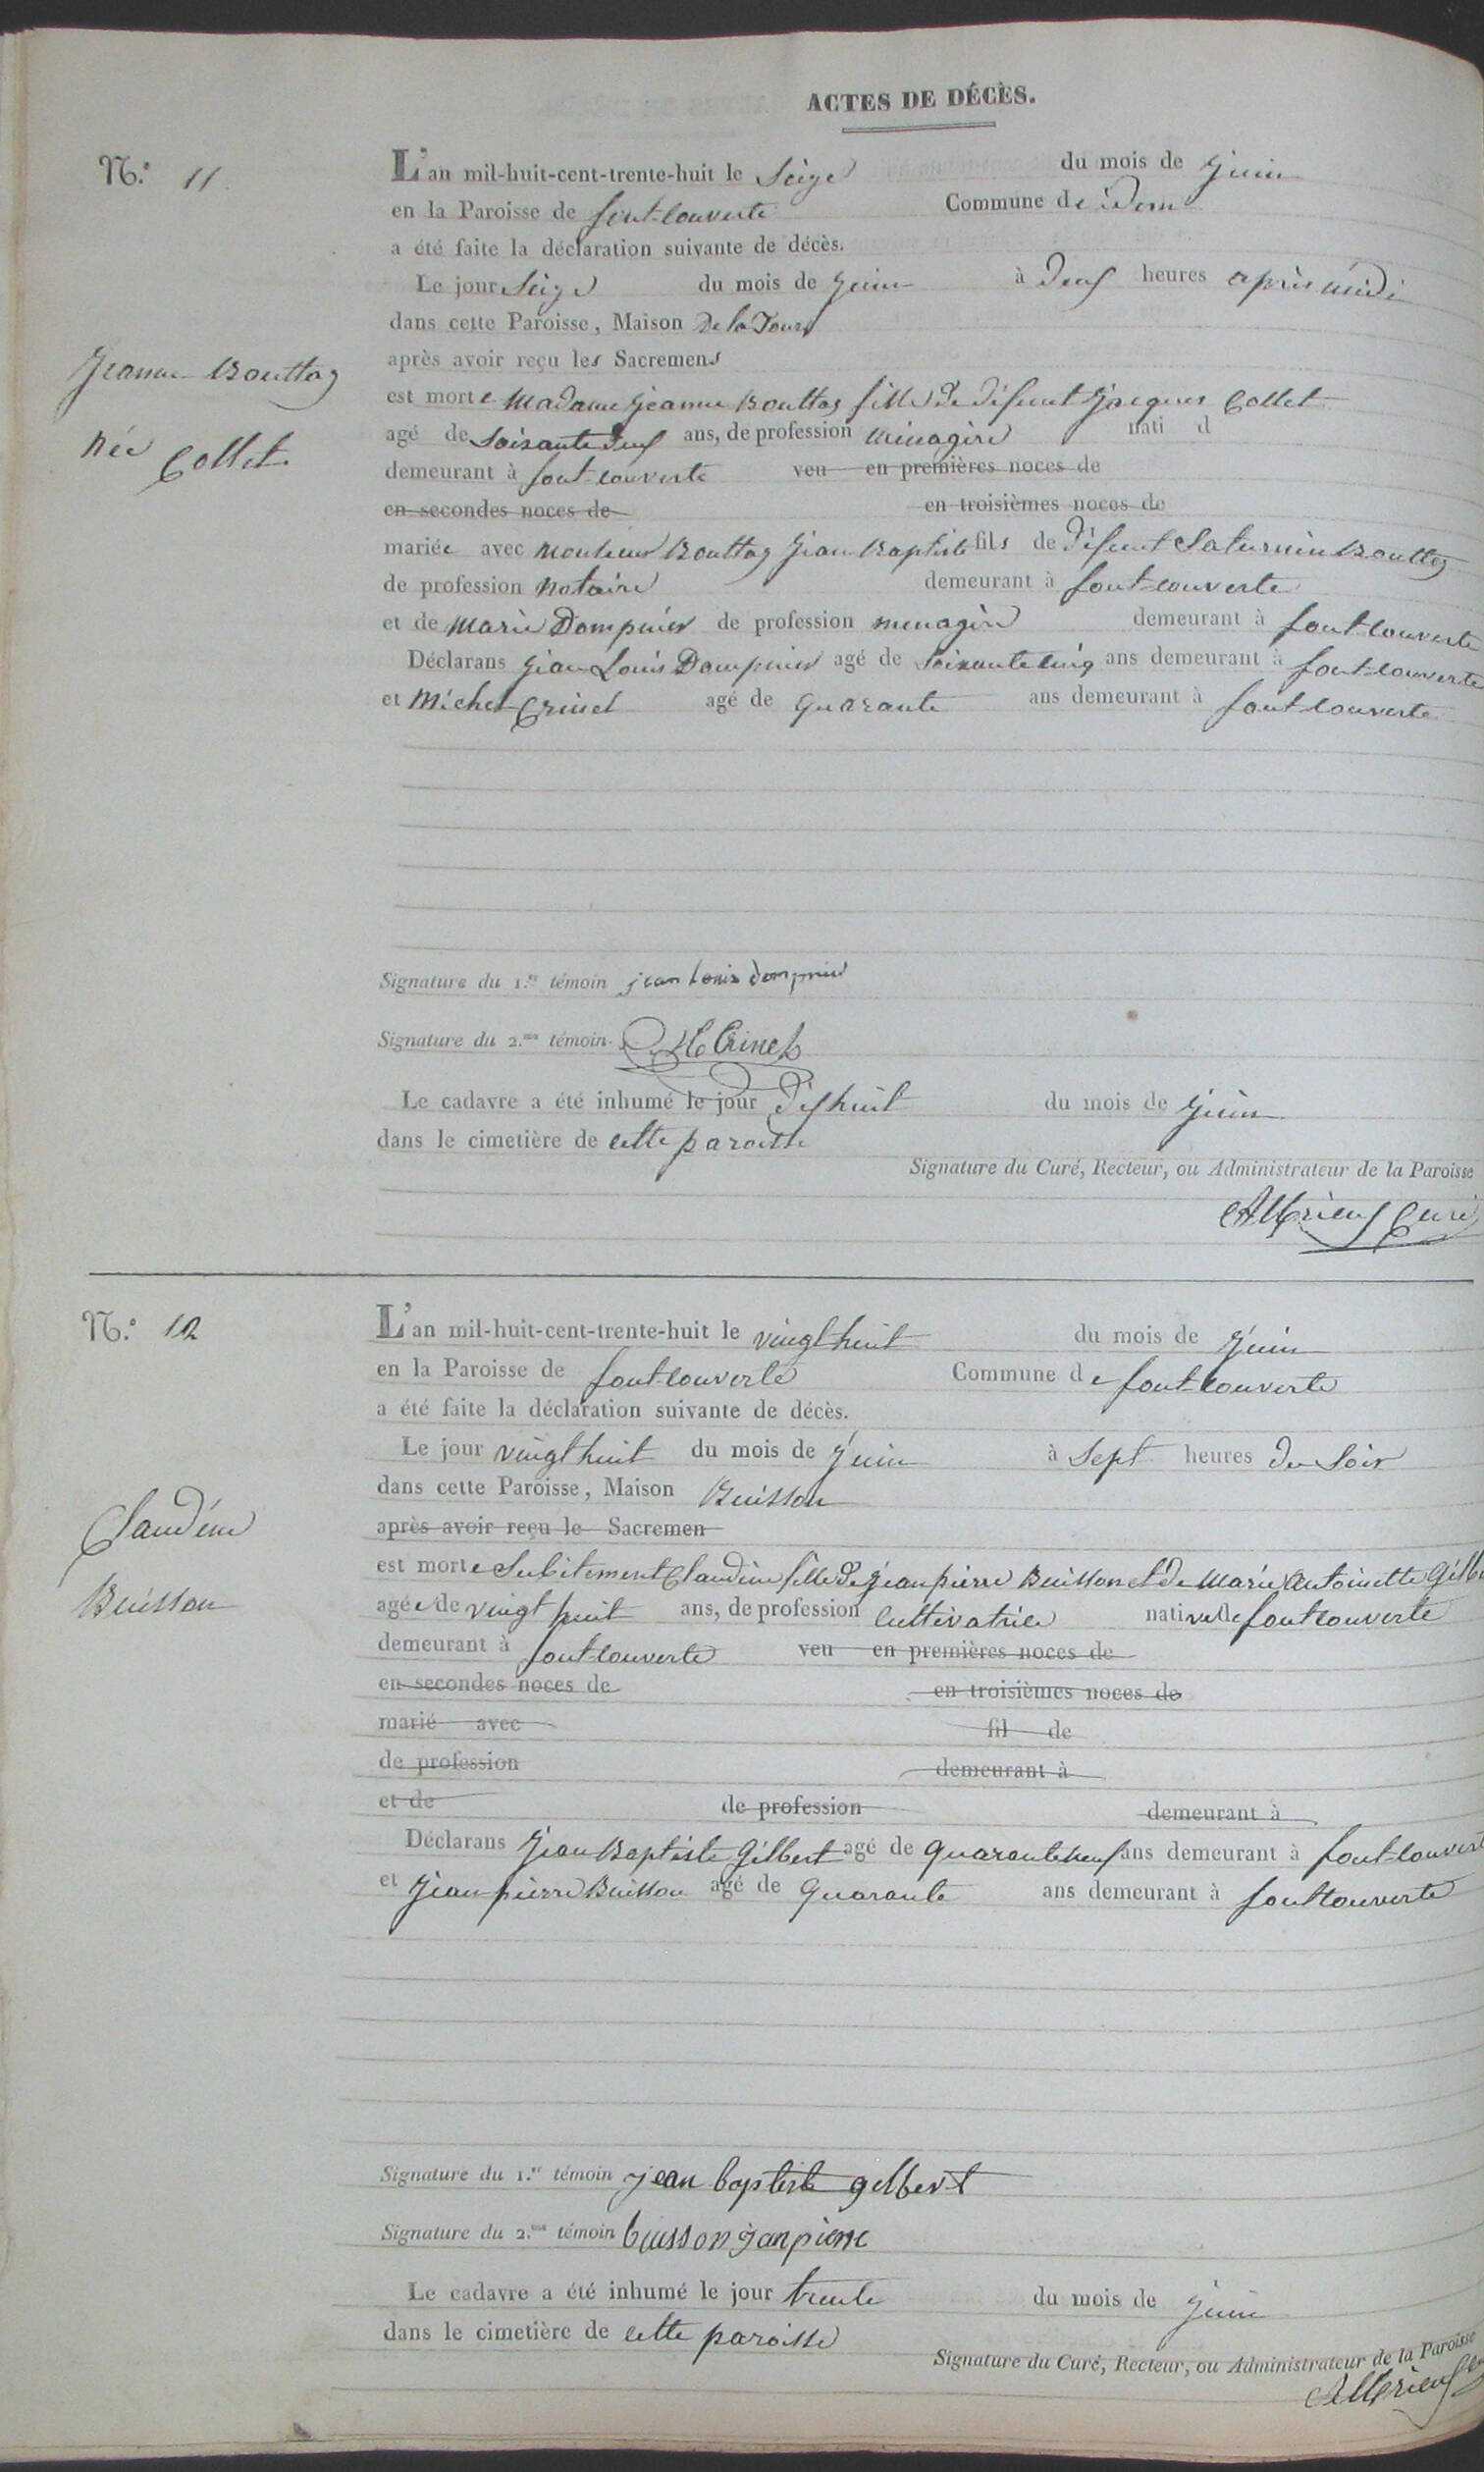 ACTES DE DÉCÈS.
N.º 11
L'an mil-huit-cent-trente-huit le Seize du mois de juin
en la Paroisse de font-Couverte Commune de idem
a été faite la déclaration suivante de décès.
Le jour Seize du mois de juin à Deux heures après midi
dans cette Paroisse, Maison De la Tour
après avoir reçu les Sacremens
Jeanne Bouttaz
née Collet
est morte Madame jeanne Bouttaz fille de défunt jacques Collet
agé de Soixante Deux ans, de profession ménagère nati d
demeurant à font-couverte veu en premières noces de
en secondes noces de en troisièmes noces de
mariée avec Monsieur Bouttaz jean Baptiste fils de défunt Saturnin Bouttaz
de profession Notaire demeurant à font-couverte
et de Marie Dompnier de profession menagère demeurant à font-couverte
Déclarans jean Louis Dompnier agé de Soixante cinq ans demeurant à font-couverte
et Michel Crinel agé de quarante ans demeurant à font couverte
Signature du 1.er témoin jean louis dompnier
Signature du 2.me témoin
Le cadavre a été inhumé le jour Dixhuit du mois de juin
dans le cimetière de cette paroisse
Signature du Curé, Recteur, ou Administrateur de la Paroisse
Curé
N.º 12
L'an mil-huit-cent-trente-huit le vingt huit du mois de juin
en la Paroisse de font-couverte Commune de font-couverte
a été faite la déclaration suivante de décès.
Le jour vingt huit du mois de juin à Sept heures du Soir
dans cette Paroisse, Maison Buisson
après avoir reçu le Sacremen
Claudine
Buisson
est morte Subitement Claudine fille de jean pierre Buisson et de Marie Antoinette Gilbe
agée de vingt huit ans, de profession Cultivatrice native de font couverte
demeurant à font-couverte veu en premières noces de
en secondes noces de en troisièmes noces de
marié avec fil de
de profession demeurant à
et de de profession demeurant à
Déclarans jean Baptiste Gilbert agé de quarante neuf ans demeurant à font-couvert
et jean pierre Buisson agé de quarante ans demeurant à font couverte
Signature du 1.er témoin jean baptiste gilbert
Signature du 2.me témoin buisson janpierre
Le cadavre a été inhumé le jour trente du mois de juin
dans le cimetière de cette paroisse
Signature du Curé, Recteur, ou Administrateur de la Paroisse